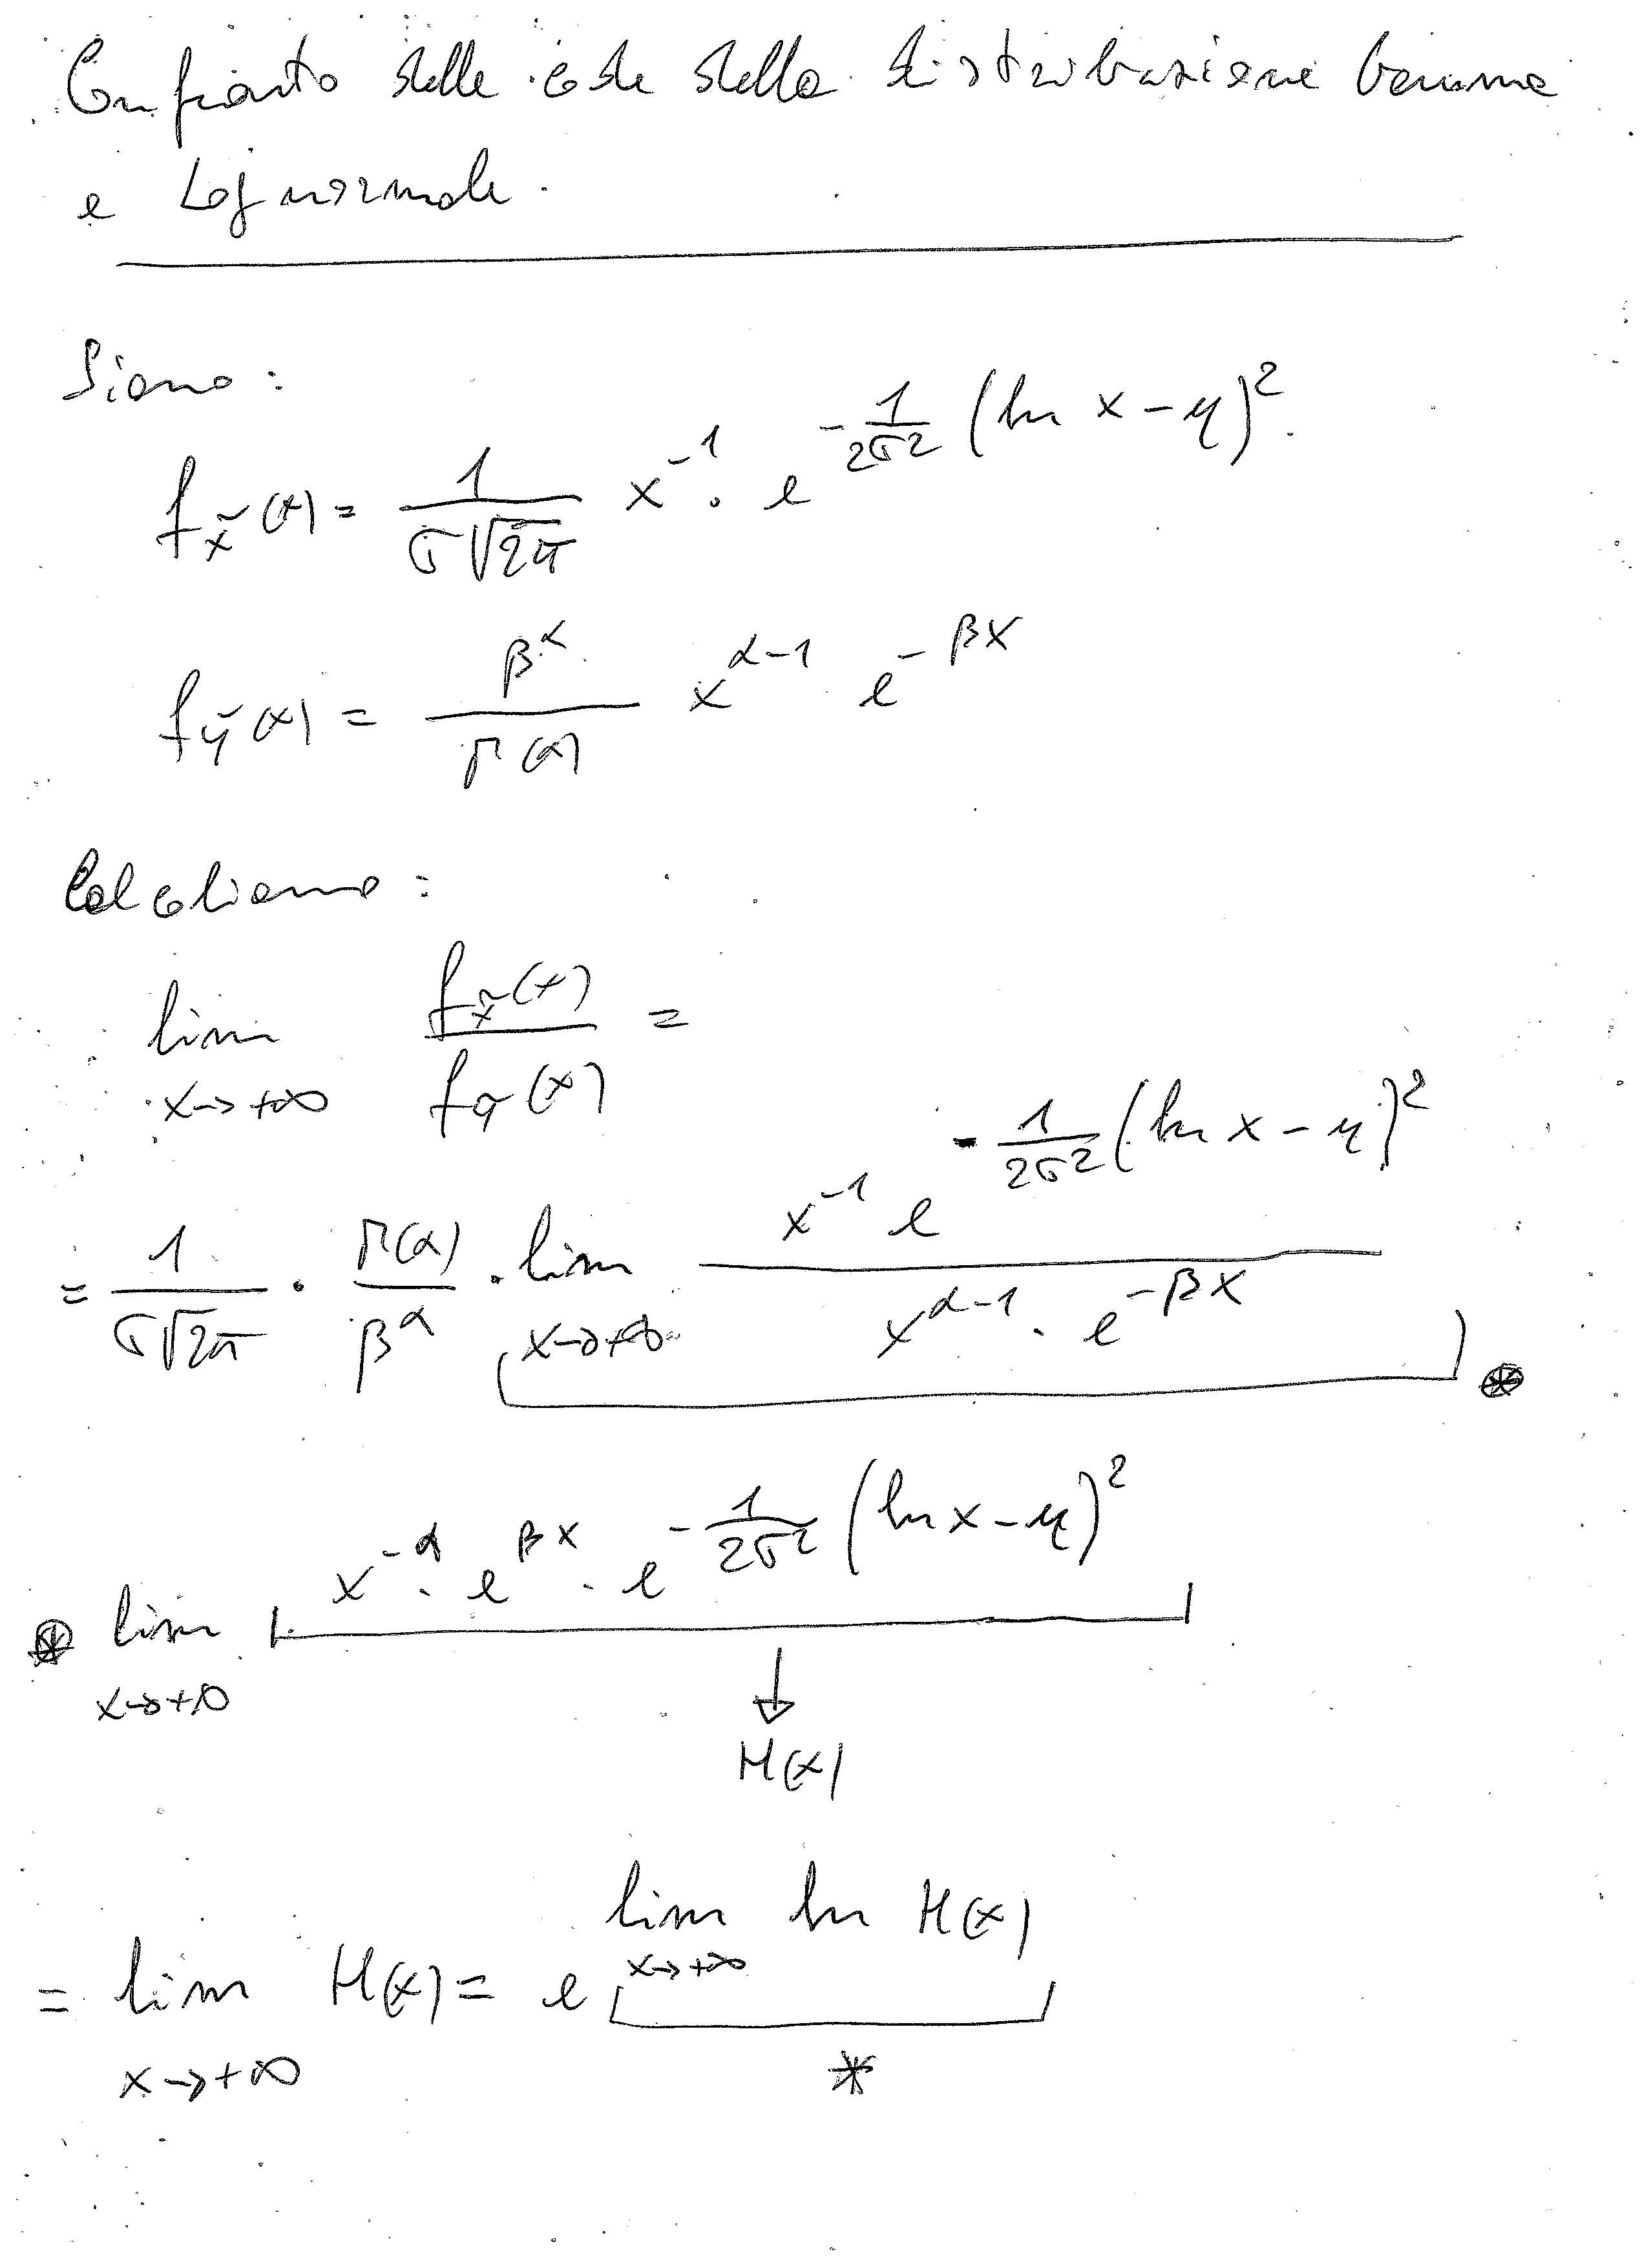 Confronto delle code della distribuzione Gamma
e Lognormale.
Siano:
f_x̃(x) = 1/(σ√2π) x^-1 · e^(-1/(2σ²) (ln x - μ)²)
f_ỹ(x) = β^α/Γ(α) x^(α-1) e^(-βx)
Calcoliamo:
lim x→+∞ f_x̃(x)/f_ỹ(x) =
= 1/(σ√2π) · Γ(α)/β^α · lim x→+∞ (x^-1 e^(-1/(2σ²) (ln x - μ)²))/(x^(α-1) · e^(-βx)) ⊛
⊛ lim x→+∞ x^-α · e^(βx) · e^(-1/(2σ²) (ln x - μ)²)
↓
H(x)
= lim x→+∞ H(x) = e^(lim x→+∞ ln H(x))
*